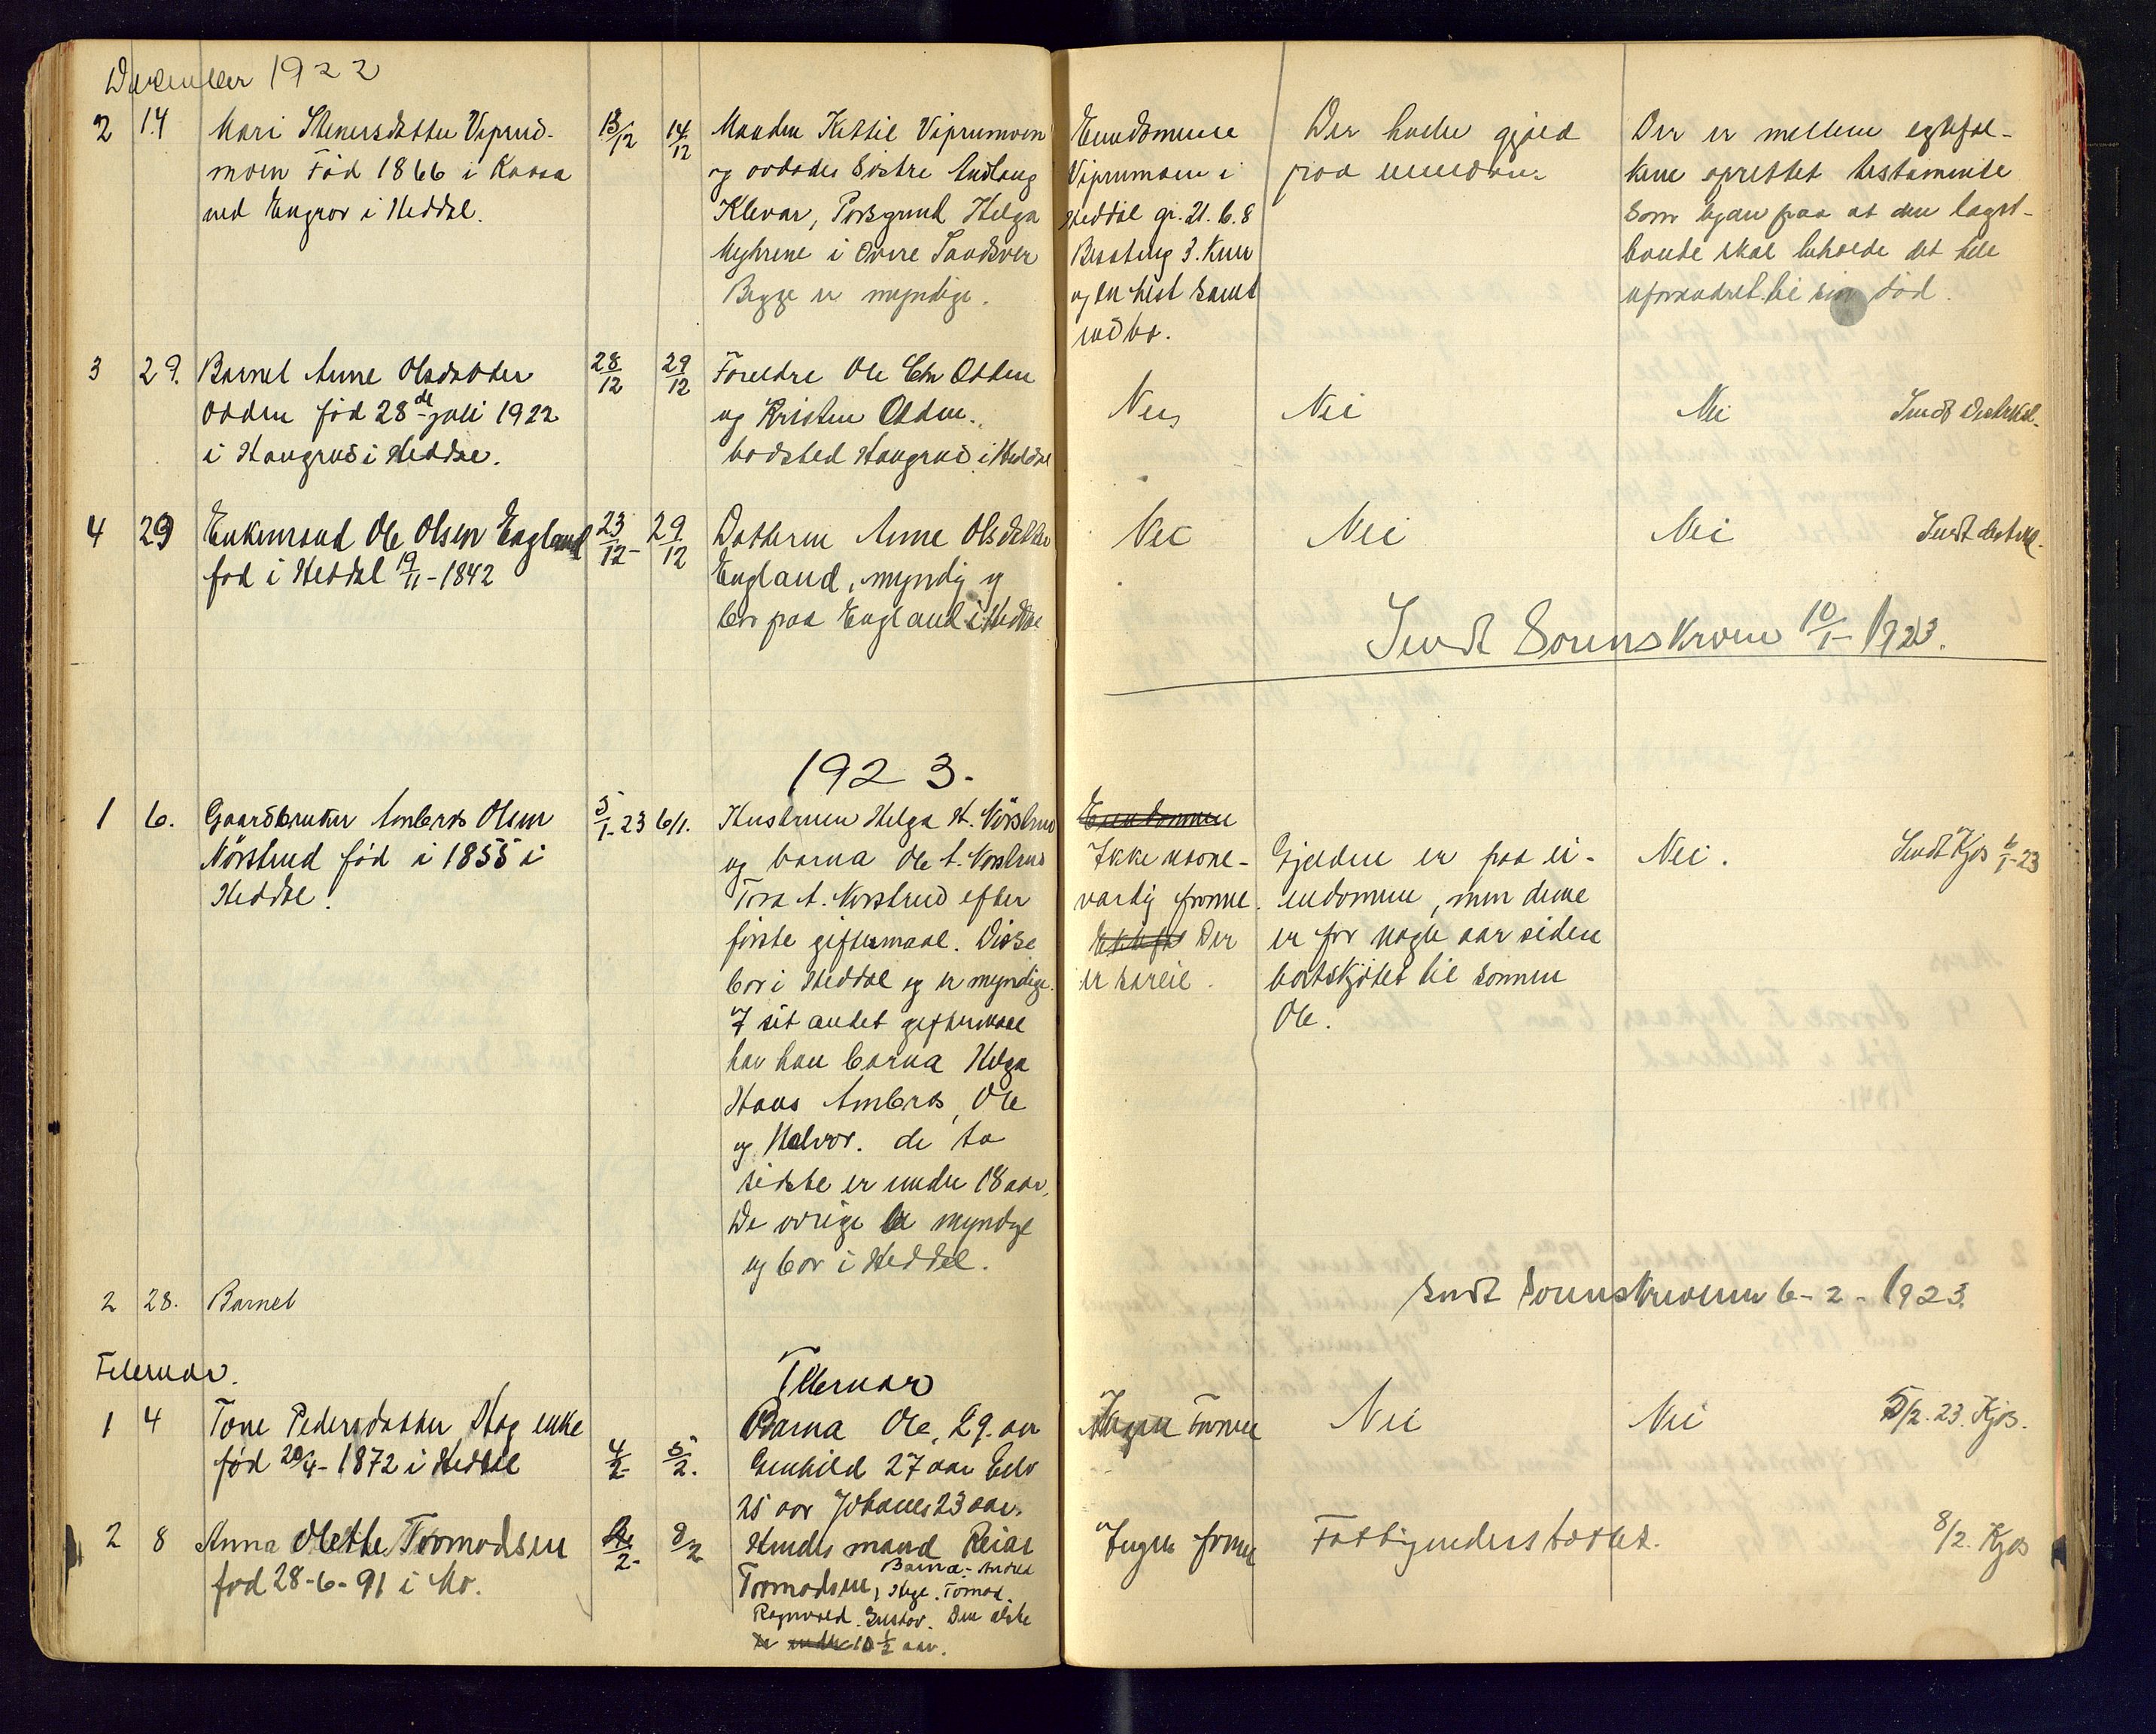 December 1922
2 14 Mari Stenersdatter Viprud-
moen Fød 1866 i
ved Engrov i Heddal.
13/12 14/12
Manden Kittil Viprumoen
og avdødes Søstre Andlaug
Klevar, Porsgrund Helga
i Øvre Sandsver
Begge er myndige.
Eiendommene
Viprumoen i
Heddal gr. 21. b. 8
Besætng 3. Kuer
og en hest samt
indbo.
Der hviler gjæld
paa eiendom
Der er mellem egtefol-
kene oprettet testamente
som gaar paa at den lægst-
levende skal beholde det hele
uforandret til sin død.
3 29. Barnet Anne Olsdatter
Odden fød 28de juli 1922
i Haugrud i Heddal.
28/12 29/12
Foreldre Ole Chr Odden
og Kristen Odden.
bodsted Haugrud i Heddal
Nei Nei Nei Sendt
4 29 Enkemand Ole Olsen England
fød i Heddal 19/11-1842
23/12- 29/12
Datteren Anne Olsdatter
England, myndig og
bor paa England i Heddal
Nei Nei Nei Sendt
Sendt Sorenskriveren 10/1-1923.
1923.
1 6. Gaardbruker Ambros Olsen
Nørstrud fød i 1855 i
Heddal.
5/1-23 6/1.
Hustruen Helga H. Nørstrud
og barna Ole A. Nørstrud
Tora A. Nørstrud efter
første giftermaal. Disse
bor i Heddal og er myndige.
I sit andet giftermaal
har han barna Helga
Hans Ambros, Ole
og Halvor. de to
sidste er under 18 aar,
De øvrige er myndige
og bor i Heddal.
Eiendommen
Ikke
formue.
Der
er særeie.
Gjælden er paa ei-
endommen, men denne
er for nogle aar siden
bortskjøtet til sønnen
Ole.
Nei.
Sendt Kjos 6/1-23
2 28. Barnet
Sendt Sorenskriveren 6-2-1923.
Februar.
Februar
1 4 Tone Pedersdatter Hag enke
fød 20/4-1872 i Heddal
4/2- 5/2.
Barna Ole, 29. aar
Gunhild 27 aar
25 aar Johannes 23 aar.
Ingen Formue Nei Nei 5/2.23. Kjos.
2 8 Anna Olette Tormodsen
fød 28-6-91 i Mo.
8/2
Hendes mand Reiar
Tormodsen, Barna:- Andrea
Hege. Tormod.
Ragnvald. Gustav. Den ælste
er under 10 ½ aar.
Ingen formue Fattigunderstøttet. 8/2. Kjos